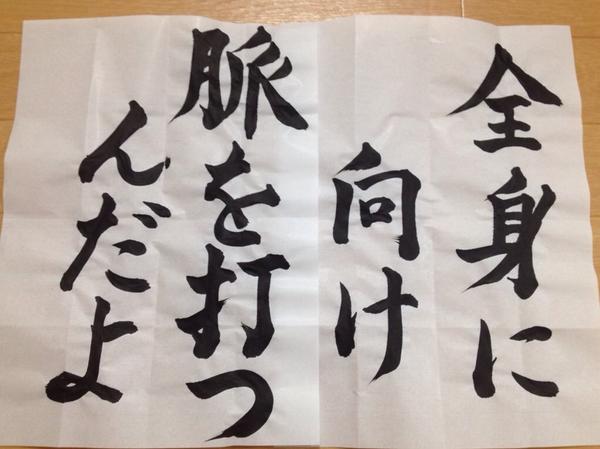 全身に
向け
脈を打つ
んだよ